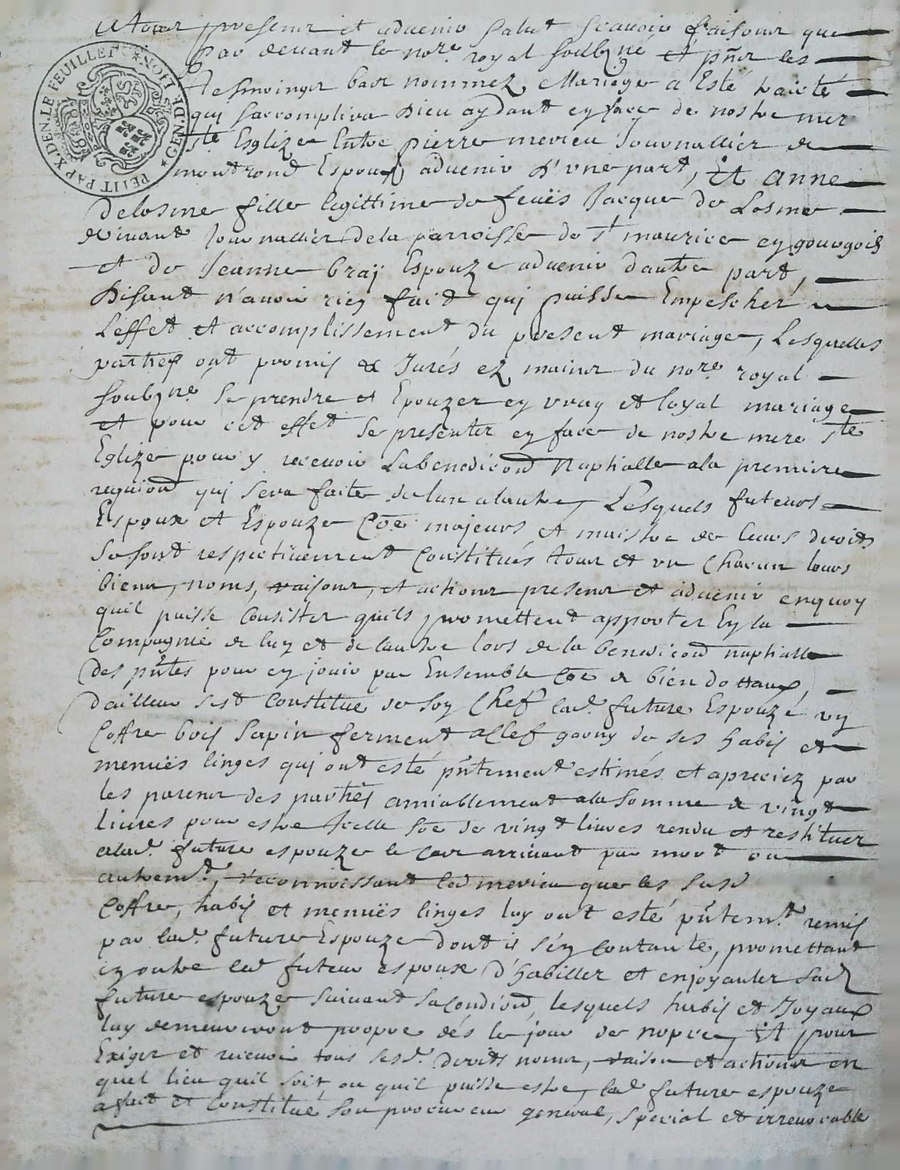 A tous presens et advenir salut scavoir faisons que
par devant le nore. royal soubzné et pñts les
tesmoings bas nommez Mariage a Esté traité
PETIT PAP X DEN. LE FEUILLET GEN. DE LION
qui saccomplira Dieu aydant en face de nostre mere
ste Esglize Entre pierre merieu Journallier de
montrond Espoux advenir d'une part, Et anne
delosme fille legittime de feuës Jacque de Losme
vivant Journallier de la parroisse de st maurice en gourgois
et de Jeanne braj Espouze advenir dautre part,
Disant n'avoir rien fait qui puisse Empescher
Leffet et accomplissement du present mariage, Lesquelles
parties ont promis & Jurés ez mains du nore. royal
soubzné. se prendre et Epouzer en vray et loyal mariage
et pour cet effet se presenter en face de nostre mere ste
Eglize pour y recevoir La benediction Naptialle a la premiere
requion qui sera faite de lun a lautre, Lesquels futeurs
Espoux et Espouze Coe majeurs et maistre de leurs droits
se sont respectivement Constitués tous et un Chacun leurs
biens, noms, raisons, et actions presens et advenir en quoy
quil puisse Consister quils promettent apporter En la
Compagnie de lun et de lautre lors de la benedicon naptialle
des pñtes pour en jouir par Ensemble Coe de bien dottaux,
d'ailleur sest Constitué de son Chef lad. future Espouze un
Coffre bois sapin ferment a Clef garny de ses habis et
menuës linges qui ont esté pñtement estimés et apreciez par
les parens des parties amiablement a la somme de vingt
livres pour estre Icelle soe de vingt livres rendu et restituer
a lad. future espouze le Cas arrivant par mort ou
autremt., reconnoissant led merieu que les susd
Coffre, habis et menuës linges luy ont esté pñtemt. remis
par lad. future Espouze dont il s'en Contante, promettant
en outre led. futeur espoux d'habiller et enjoyauler sad
future espouze suivant sa condicion, lesquels habis et Joyaux
luy demeureront propre dés le jour de nopce, Et pour
Exiger et recevoir tous sesd. droits noms, raison et actions en
quel lieu quil soit ou quil puisse estre, lad. future espouze
a fait et Constitué son procureur general, special et irrevocable